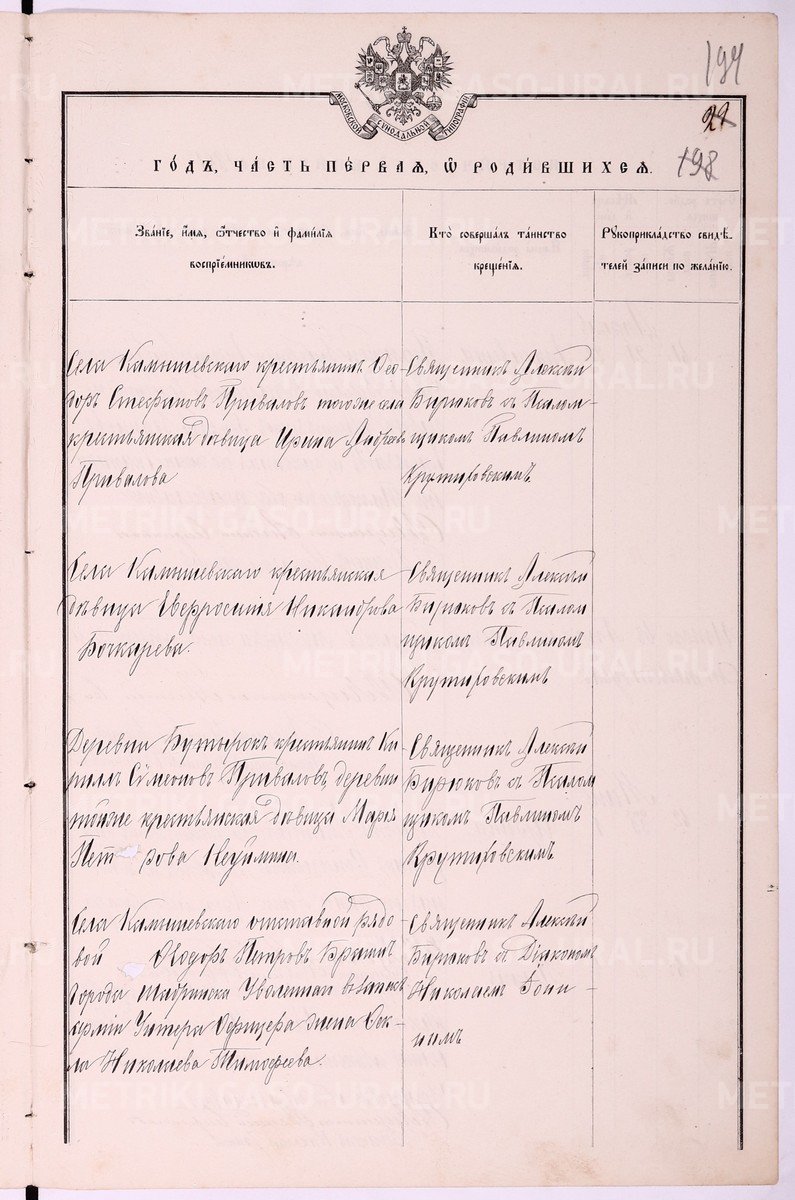 194
22
198
МОСКОВСКОЙ СѴНОДАЛЬНОЙ ТИПОГРАФІИ
ГО́ДЪ, ЧА́СТЬ ПЕ́РВАЯ, Ѽ РОДИ́ВШИХСЯ.
Зва́нїе, и҆́мя, ѻ҆́тчество и҆ фами́лїя
воспрїе́мникѡвъ.
Кто̀ соверша́лъ та́инство
креще́нїя.
Рꙋкоприкла́дство свидѣ́-
телей за́писи по жела́нїю.
Села Камышевскаго крестьянинъ Ѳео-
доръ Стефановъ Приваловъ тогоже села
крестьянская дѣвица Ирина Андреева
Привалова
Священникъ Алексѣй
Бирюковъ съ Псалом-
щикомъ Павлиномъ
Крутиховскимъ
Села Камышевскаго крестьянская
дѣвица Евфросинія Никандрова
Бочкарева.
Священникъ Алексѣй
Бирюковъ съ Псалом
щикомъ Павлиномъ
Крутиховскимъ
Деревни Бутырокъ крестьянинъ Ки-
риллъ Сѵмеоновъ Приваловъ, деревни
тойже крестьянская дѣвица Марѳа
Петрова Неуймина.
Священникъ Алексѣй
Бирюковъ съ Псалом
щикомъ Павлиномъ
Крутиховскимъ.
Села Камышевскаго отставной рядо
вой Ѳеодоръ Петровъ
города Шадринска Уволеннаго въ запасъ
арміи Унтеръ Офицера жена Ѳек-
ла Николаева Тимофеева.
Священникъ Алексѣй
Бирюковъ съ Діакономъ
Николаемъ Іони-
нымъ
METRIKI.GASO-URAL.RU